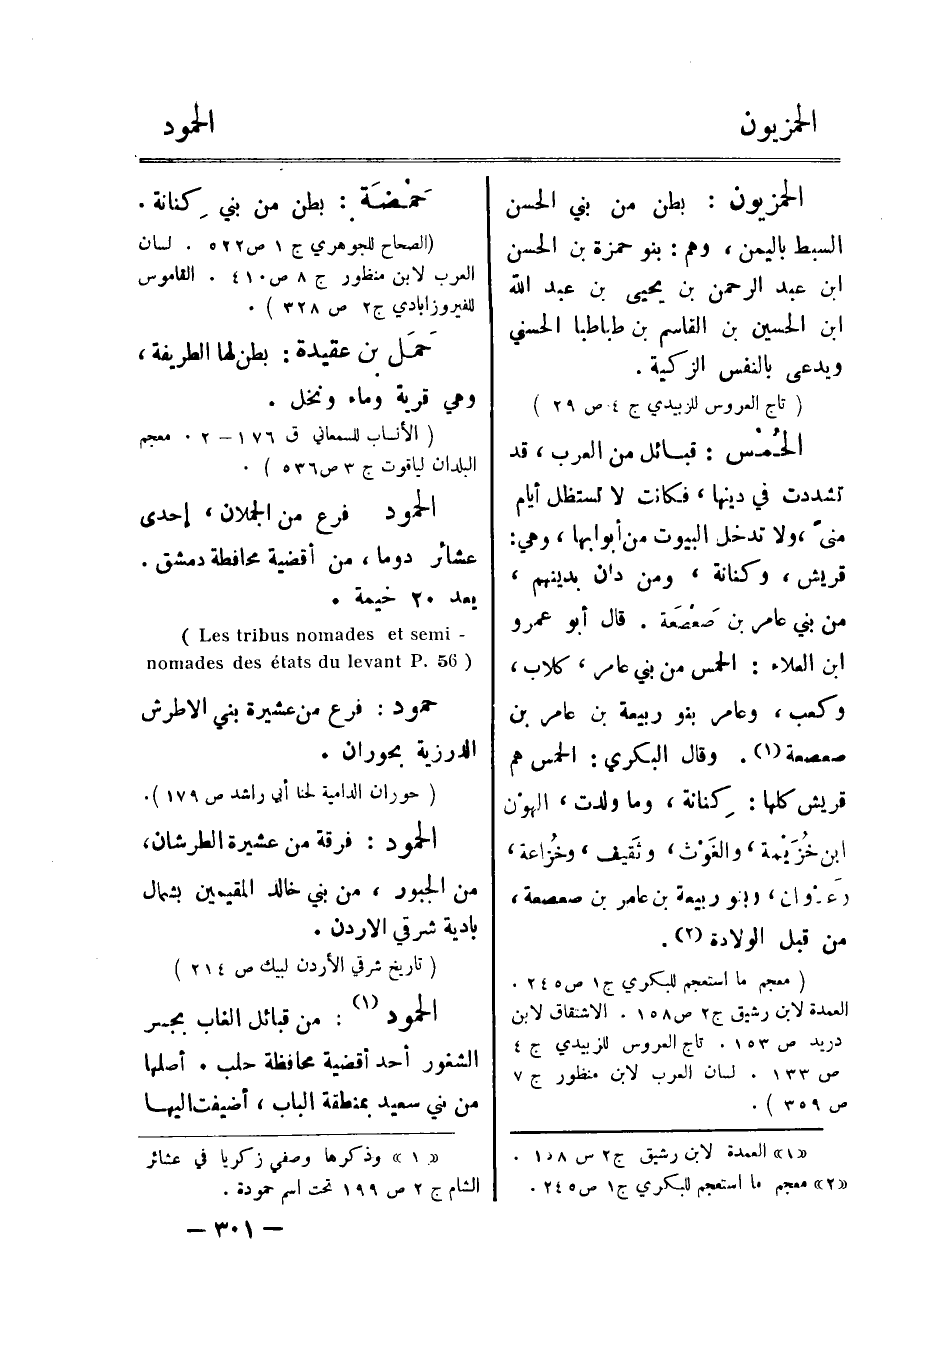 الحمزيون
الحمود
الحمزيون : بطن من بني الحسن
السبط باليمن ، وهم : بنو حمزة بن الحسن
ابن عبد الرحمن بن يحيى بن عبد الله
ابن الحسين بن القاسم بن طباطبا الحسني
ويدعى بالنفس الزكية .
( تاج العروس للزبيدي ج ٤ ص ٢٩ )
الحُمْس : قبائل من العرب ، قد
تشددت في دينها ، فكانت لا تستظل أيام
منىً ، ولا تدخل البيوت من أبوابها ، وهي :
قريش ، وكنانة ، ومن دان بدينهم ،
من بني عامر بن صَعْصَعَة . قال أبو عمرو
ابن العلاء : الحمس من بني عامر ، كلاب ،
وكعب ، وعامر بنو ربيعة بن عامر بن
صعصعة (١) . وقال البكري : الحمس هم
قريش كلها : كِنانة ، وما ولدت ، الهوْن
ابن خُزَيْمة ، والغَوْث ، وثَقيف ، وخُزاعة ،
وعَدْوان ، وبنو ربيعة بن عامر بن صعصعة ،
من قبل الولادة (٢) .
( معجم ما استعجم للبكري ج ١ ص ٢٤٥ .
العمدة لابن رشيق ج ٢ ص ١٥٨ . الاشتقاق لابن
دريد ص ١٥٣ . تاج العروس للزبيدي ج ٤
ص ١٣٣ . لسان العرب لابن منظور ج ٧
ص ٣٥٩ ) .
«١» العمدة لابن رشيق ج ٢ ص ١٥٨ .
«٢» معجم ما استعجم للبكري ج ١ ص ٢٤٥ .
حَمْضَة : بطن من بني كِنانة .
(الصحاح للجوهري ج ١ ص ٥٢٢ . لسان
العرب لابن منظور ج ٨ ص ٤١٠ . القاموس
للفيروزابادي ج ٢ ص ٣٢٨ ) .
حَمَل بن عقيدة : بطن لها الطريفة ،
وهي قرية وماء ونخل .
( الأنساب للسمعاني ق ١٧٦ – ٢ . معجم
البلدان لياقوت ج ٣ ص ٥٣٦ ) .
الحمود فرع من الجملان ، إحدى
عشائر دوما ، من أقضية محافظة دمشق .
يعد ٢٠ خيمة .
( Les tribus nomades et semi -
nomades des états du levant P. 56 )
حمود : فرع من عشيرة بني الاطرش
الدرزية بحوران .
( حوران الدامية لحنا أبي راشد ص ١٧٩ ) .
الحمود : فرقة من عشيرة الطرشان ،
من الجبور ، من بني خالد المقيمين بشمال
بادية شرقي الاردن .
( تاريخ شرقي الأردن لبيك ص ٢١٤ )
الحمود (١) : من قبائل الغاب بجسر
الشغور أحد أقضية محافظة حلب . أصلها
من بني سعيد بمنطقة الباب ، أضيفت اليها
«١» وذكرها وصفي زكريا في عشائر
الشام ج ٢ ص ١٩٩ تحت اسم حمودة .
— ٣٠١ —